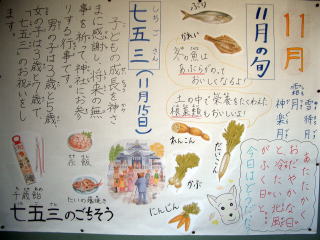 11月
霜月
神楽月
11月の旬
ぶり
かれい
冬の魚は
あぶらがのって
おいしくなるよ！
土の中で栄養をたくわえた
根菜類もおいしいよ！
れんこん
だいこん
かぶ
にんじん
七五三(11月15日)
しちごさん
子どもの成長を神さ
まに感謝し、将来の無
事を祈って神社にお参
りする行事です。
男の子は3歳と5歳、
女の子は3歳と7歳で、
七五三のお祝いをし
ます。
千歳飴
赤飯
たいの塩焼き
七五三のごちそう